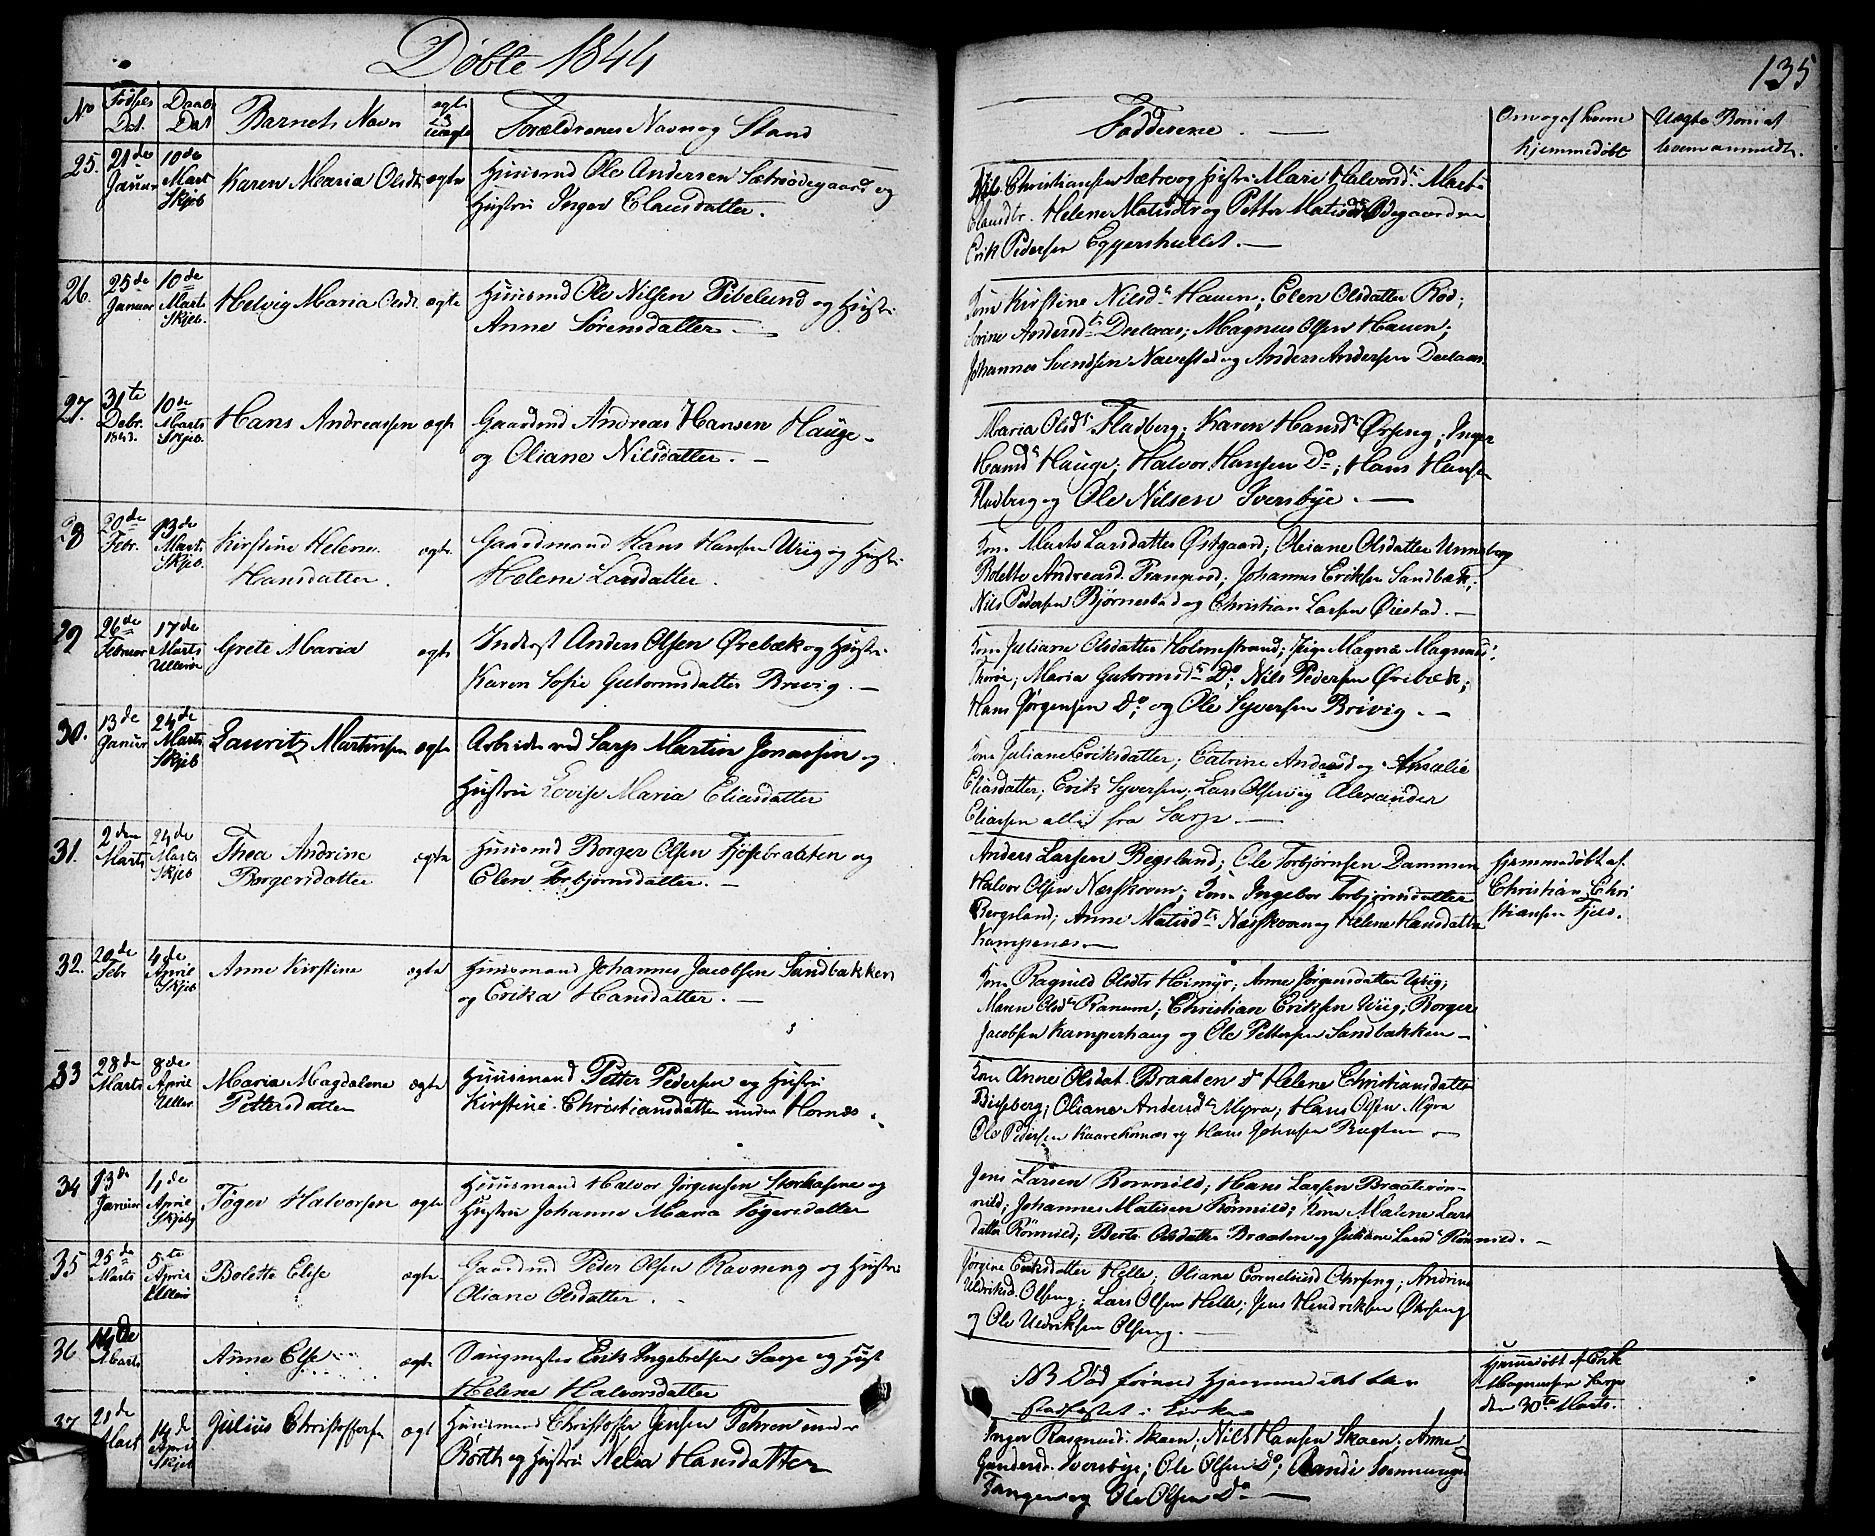 Døbte 1844
135
No
Fødsels Dat.
Daabs Dat
Barnets Navn
ægte uægte
Forældrenes Navn og Stand
Fadderene.
Om og af hvem hjemmedøbt
Uægte Børn af hvem anmeldt.
25. 21de Januar 10de Mart Skjeb Karen Maria Olsdt ægte Huusmd Ole Andersen Sætrødegaard og
Hustru Inger Clausdatter.
Nils Christiansen Sætre og Hustru Mari Halvorsdt. Mart
Clausdtr. Helene Matisdtr og Petter Matisen Ødegaarden
Erik Pedersen Eggershullet.
26. 25de Januar 10de Marts Skjeb. Helvig Maria Olsdt ægte Huusmd Ole Nilsen Pibelund og Hustru
Anne Sørensdatter.
Kone Kirstine Nilsdt Hauen; Elen Olsdatter Rød;
Sorine Andersdt Deelaas; Magnus Olsen Hauen;
Johannes Svendsen Navestad og Anders Andersen Deelaas
27. 31te Debr. 1843. 10de Marts Skjeb. Hans Andreassen ægte Gaardmd Andreas Hansen Hauge
og Oliane Nilsdatter.
Maria Olsdt Fladberg; Karen Hansdt Ørseng; Inger
Hansdt Hauge; Halvor Hansen Do; Hans Hansen
Fladberg og Ole Nilsen Iversbye.
28 20de Febr. 13de Marts Skjeb. Kirstine Helene ægte Gaardmand Hans Hansen Viig og Hustru
Hansdatter. Helene Larsdatter.
Kone Marte Larsdatter Østgaard; Oleiane Olsdatter Unneberg
Bolette Andreasd. Prangerød; Johannes Eriksen Sandbæk;
Nils Pedersen Bjørnestad og Christian Larsen Øiestad.
29 26de Februar 17de Marts Ullerøe Grete Maria ægte Inderst Anders Olsen Ørebæk og Hustru
Karen Sofie Gutormsdatter Brevig.
Kone Juliane Olsdatter Holmestrand; Pige Magna Magnusd.
Thorøe; Maria Gutormsdt Do; Nils Pedersen Ørebæk;
Hans Jørgensen Do; og Ole Syversen Brivig.
30. 13de Januar 24de Marts Skjeb Lauritz Martinsen ægte Arbeider ved Sarp Martin Jonassen og
Hustru Lovise Maria Eliasdatter
Kone Juliane Eriksdatter; Catrine Andersd og Amalie
Eliasdatter; Erik Syversen; Lars Olsen og Alexander
Eliassen alle fra Sarp.
31. 2den Marts 24de Marts Skjeb Thea Andrine ægte Huusmd Borger Olsen Fjøsebraaten og
Borgersdatter Elen Torbjørnsdatter.
Anders Larsen Bergsland; Ole Torbjørnsen Dammen
Halvor Olsen Næsskoven; Kone Ingebor Torbjørnsdatter
Bergsland; Anne Matisdt Næsskoven og Helene Hansdatter
Kampenæs
Hjemmedøbt af
Christian Chri
stiansen Fjeld.
32. 20de Febr 4de April Skjeb Anne Kirstine ægte Huusmand Johannes Jacobsen Sandbækken
og Erika Hansdatter.
Kone Ragnild Olsdtr Høimyr; Anne Jørgensdatter Viig;
Maren Olsdt Ranum; Christian Eriksen Viig; Borger
Jacobsen Kamperhaug og Ole Pettersen Sandbækken
33 28de Marts 8de April Uller. Maria Magdalene ægte Huusmand Petter Pedersen og Hustru
Pettersdatter Kirstine Christiansdatter under Hornæs.
Kone Anne Olsdat. Braaten Do Helene Christiansdatter
Buseberg; Oliane Andersdt Myra; Hans Olsen Myra
Ole Pedersen Kaarekonæs og Hans Johnsen Bugten
34 13de Januar 4de April Skjeb Tøger Halvorsen ægte Huusmand Halvor Jørgensen Storkasene og
Hustru Johanne Maria Tøgersdatter
Jens Larsen Rømnild; Hans Larsen Braaterøm-
nild; Johannes Matisen Rømnild; Kone Malene Lars
datter Rømnild; Berte Olsdatter Braaten og Juliane Larsd Rømnild.
35 25de Marts 5te April Ullerø Bolette Elise ægte Gaardmd Peder Olsen Ravneng og Hustru
Oliane Olsdatter.
Jørgine Eriksdatter Helle; Oliane Corneliusd Ohrseng; Andrine
Uldriksd. Olseng; Lars Olsen Helle; Jens Hendriksen Øhrseng
og Ole Uldriksen Olseng.
36 14de Marts Anne Else ægte Saugmester Erik Ingebretsen Sarp og Hust
Helene Halvorsdatter
NB Død førend Hjemmedaaben
stadfæstet i Kirken
Hjemmedøbt af Erik
Magnussen Sarp
den 30te Marts.
37 28de Mart 14de April Skjeb Julius Christoffersen ægt Huusmand Christoffer Jensen Pehren under
Borth og Hustru Nelia Hansdatter
Inger Rasmusd. Skaen; Nils Hansen Skaen; Anne
Gundersd. Iversbye; Ole Olsen Do; Randi Svenningsd
Tangen og Ole Olsen Do